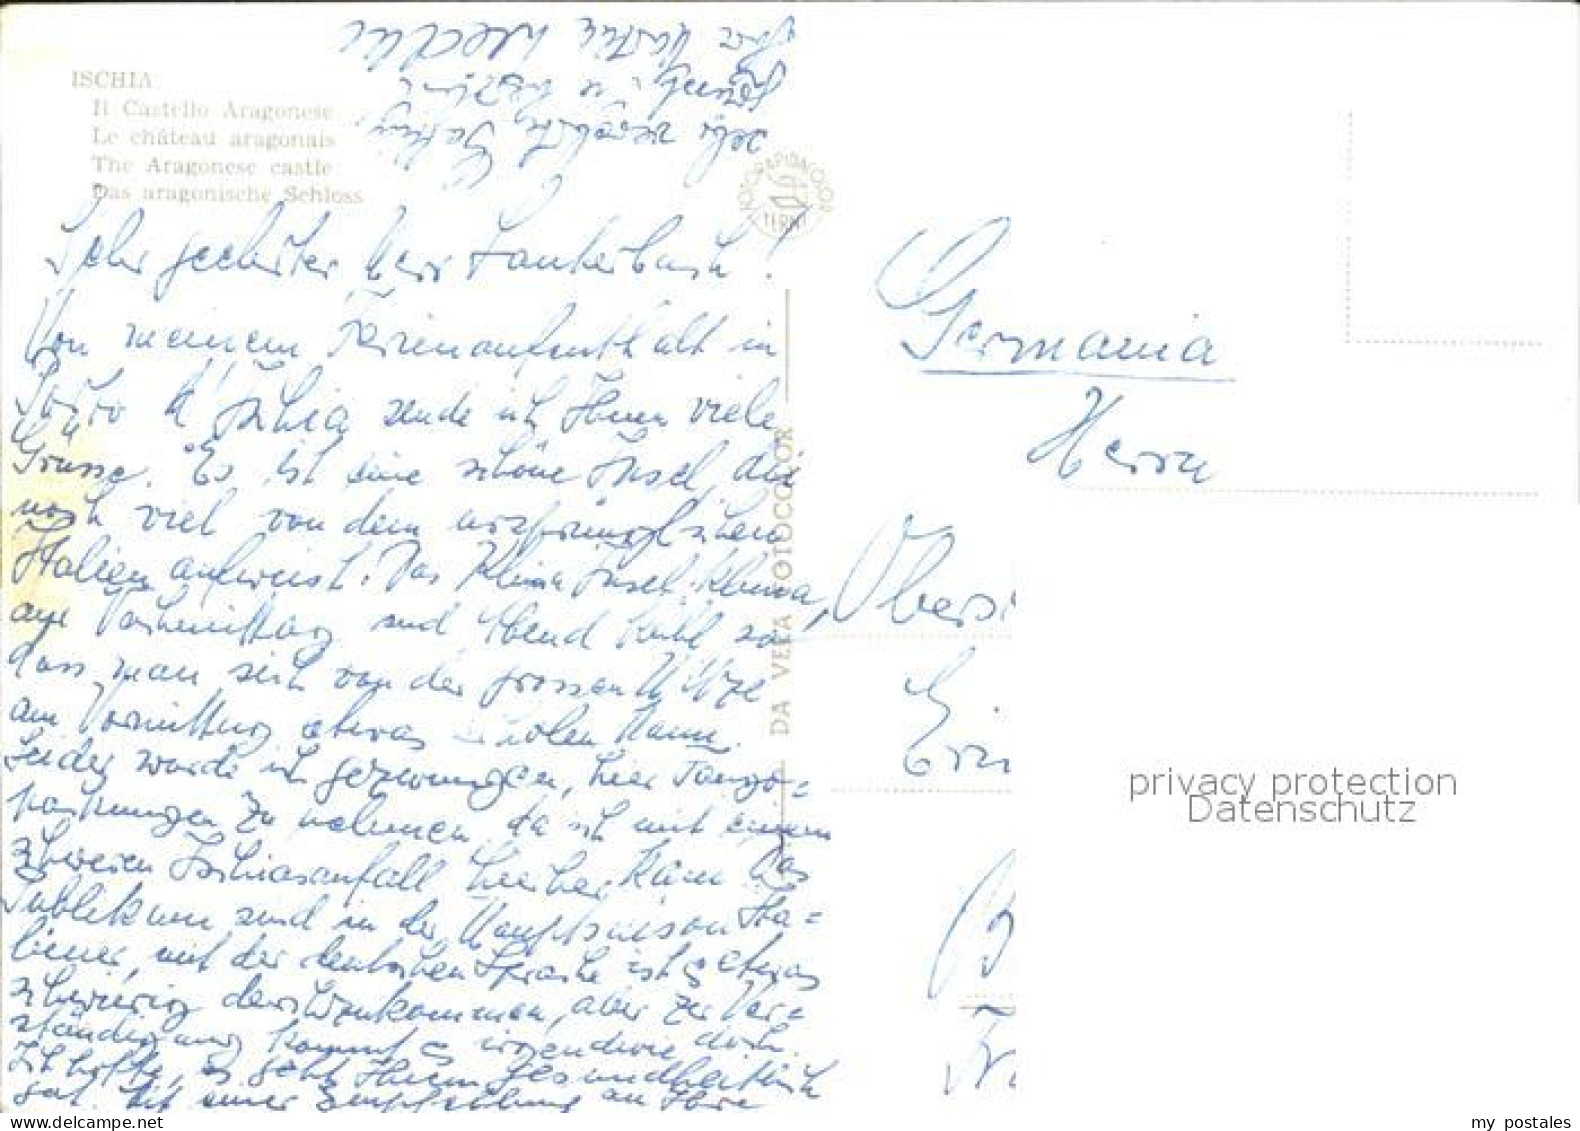 ISCHIA
Il Castello Aragonese
Le château aragonais
The Aragonese castle
Das aragonische Schloss
FOTORAPIDACOLOR
TERNI
DA VERA FOTOCOLOR
Sehr geehrter Herr Lauterbach!
Von meinem Ferienaufenthalt in
Ischia sende ich Ihnen viele
Grüsse. Es ist eine schöne Insel die
noch viel von dem ursprünglichen
Italien aufweist. Das Klima Insel-Klima,
am und Abend kühl so
dass man sich von der grossen Hitze
am Vormittag etwas erholen kann.
Leider wurde ich gezwungen, hier Fango=
packungen zu nehmen, da ich mit einem
schweren Ischiasanfall hierher kam. Das
Publikum sind in der Hauptsaison Ita=
liener, mit der deutschen Sprache ist es etwas
schwierig durchzukommen, aber zur Ver=
ständigung kommt es irgendwie doch.
Ich hoffe, es geht Ihnen gesundheitlich
gut. Mit einer Empfehlung an Ihre
sehr verehrte Gattin
Ihre
Germania
Herrn
Obers
B
Fr
privacy protection
Datenschutz
my postales